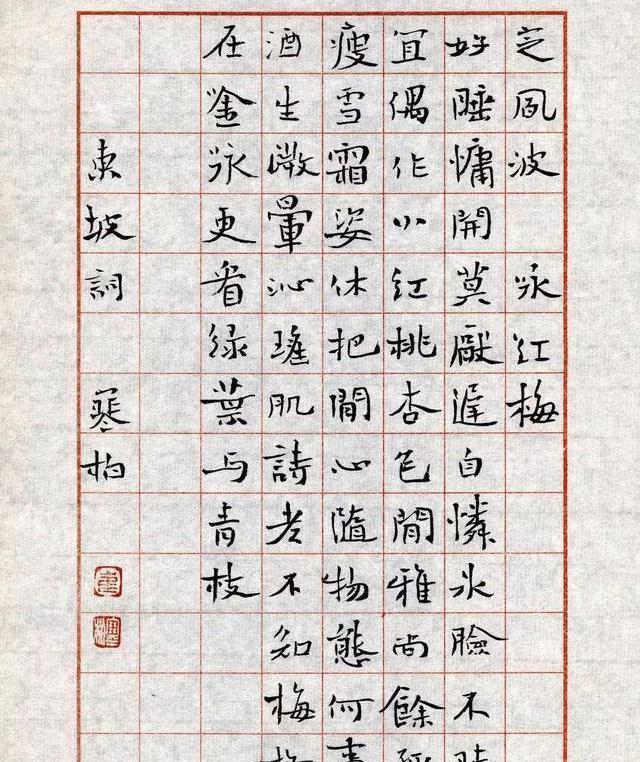 定風波 詠红梅
好睡慵開莫厭遲自憐冰臉不時
宜偶作小红桃杏色閒雅尚餘孤
瘦雪霜姿休把閒心隨物態何事
酒生微暈沁瑤肌詩老不知梅格
在唫詠更看绿葉与青枝
東坡詞 柏